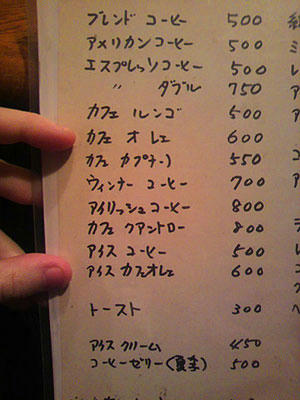 ブレンド コーヒー 500
アメリカンコーヒー 500
エスプレッソコーヒー 500
〃 ダブル 750
カフェ ルンゴ 500
カフェ オ レェ 600
カフェ カプチーノ 550
ウィンナー コーヒー 700
アイリッシュコーヒー 800
カフェ クアントロー 800
アイス コーヒー 500
アイス カフェオレェ 600
トースト 300
アイス クリーム 450
コーヒーゼリー(夏季) 500